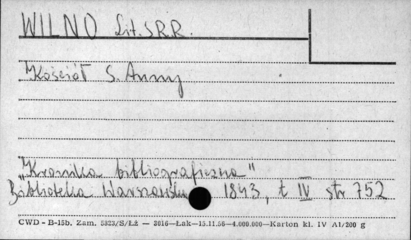 WILNO Lit. S.R.R.
Kościół S. Anny
"Kronika bibliograficzna"
Biblioteka Warszawska 1843, t IV str 752
CWD - B-15b. Zam. 5323/S/ŁŻ — 2016—Łak—15.11.56—4.000.000—Karton kl. IV A1/200 g